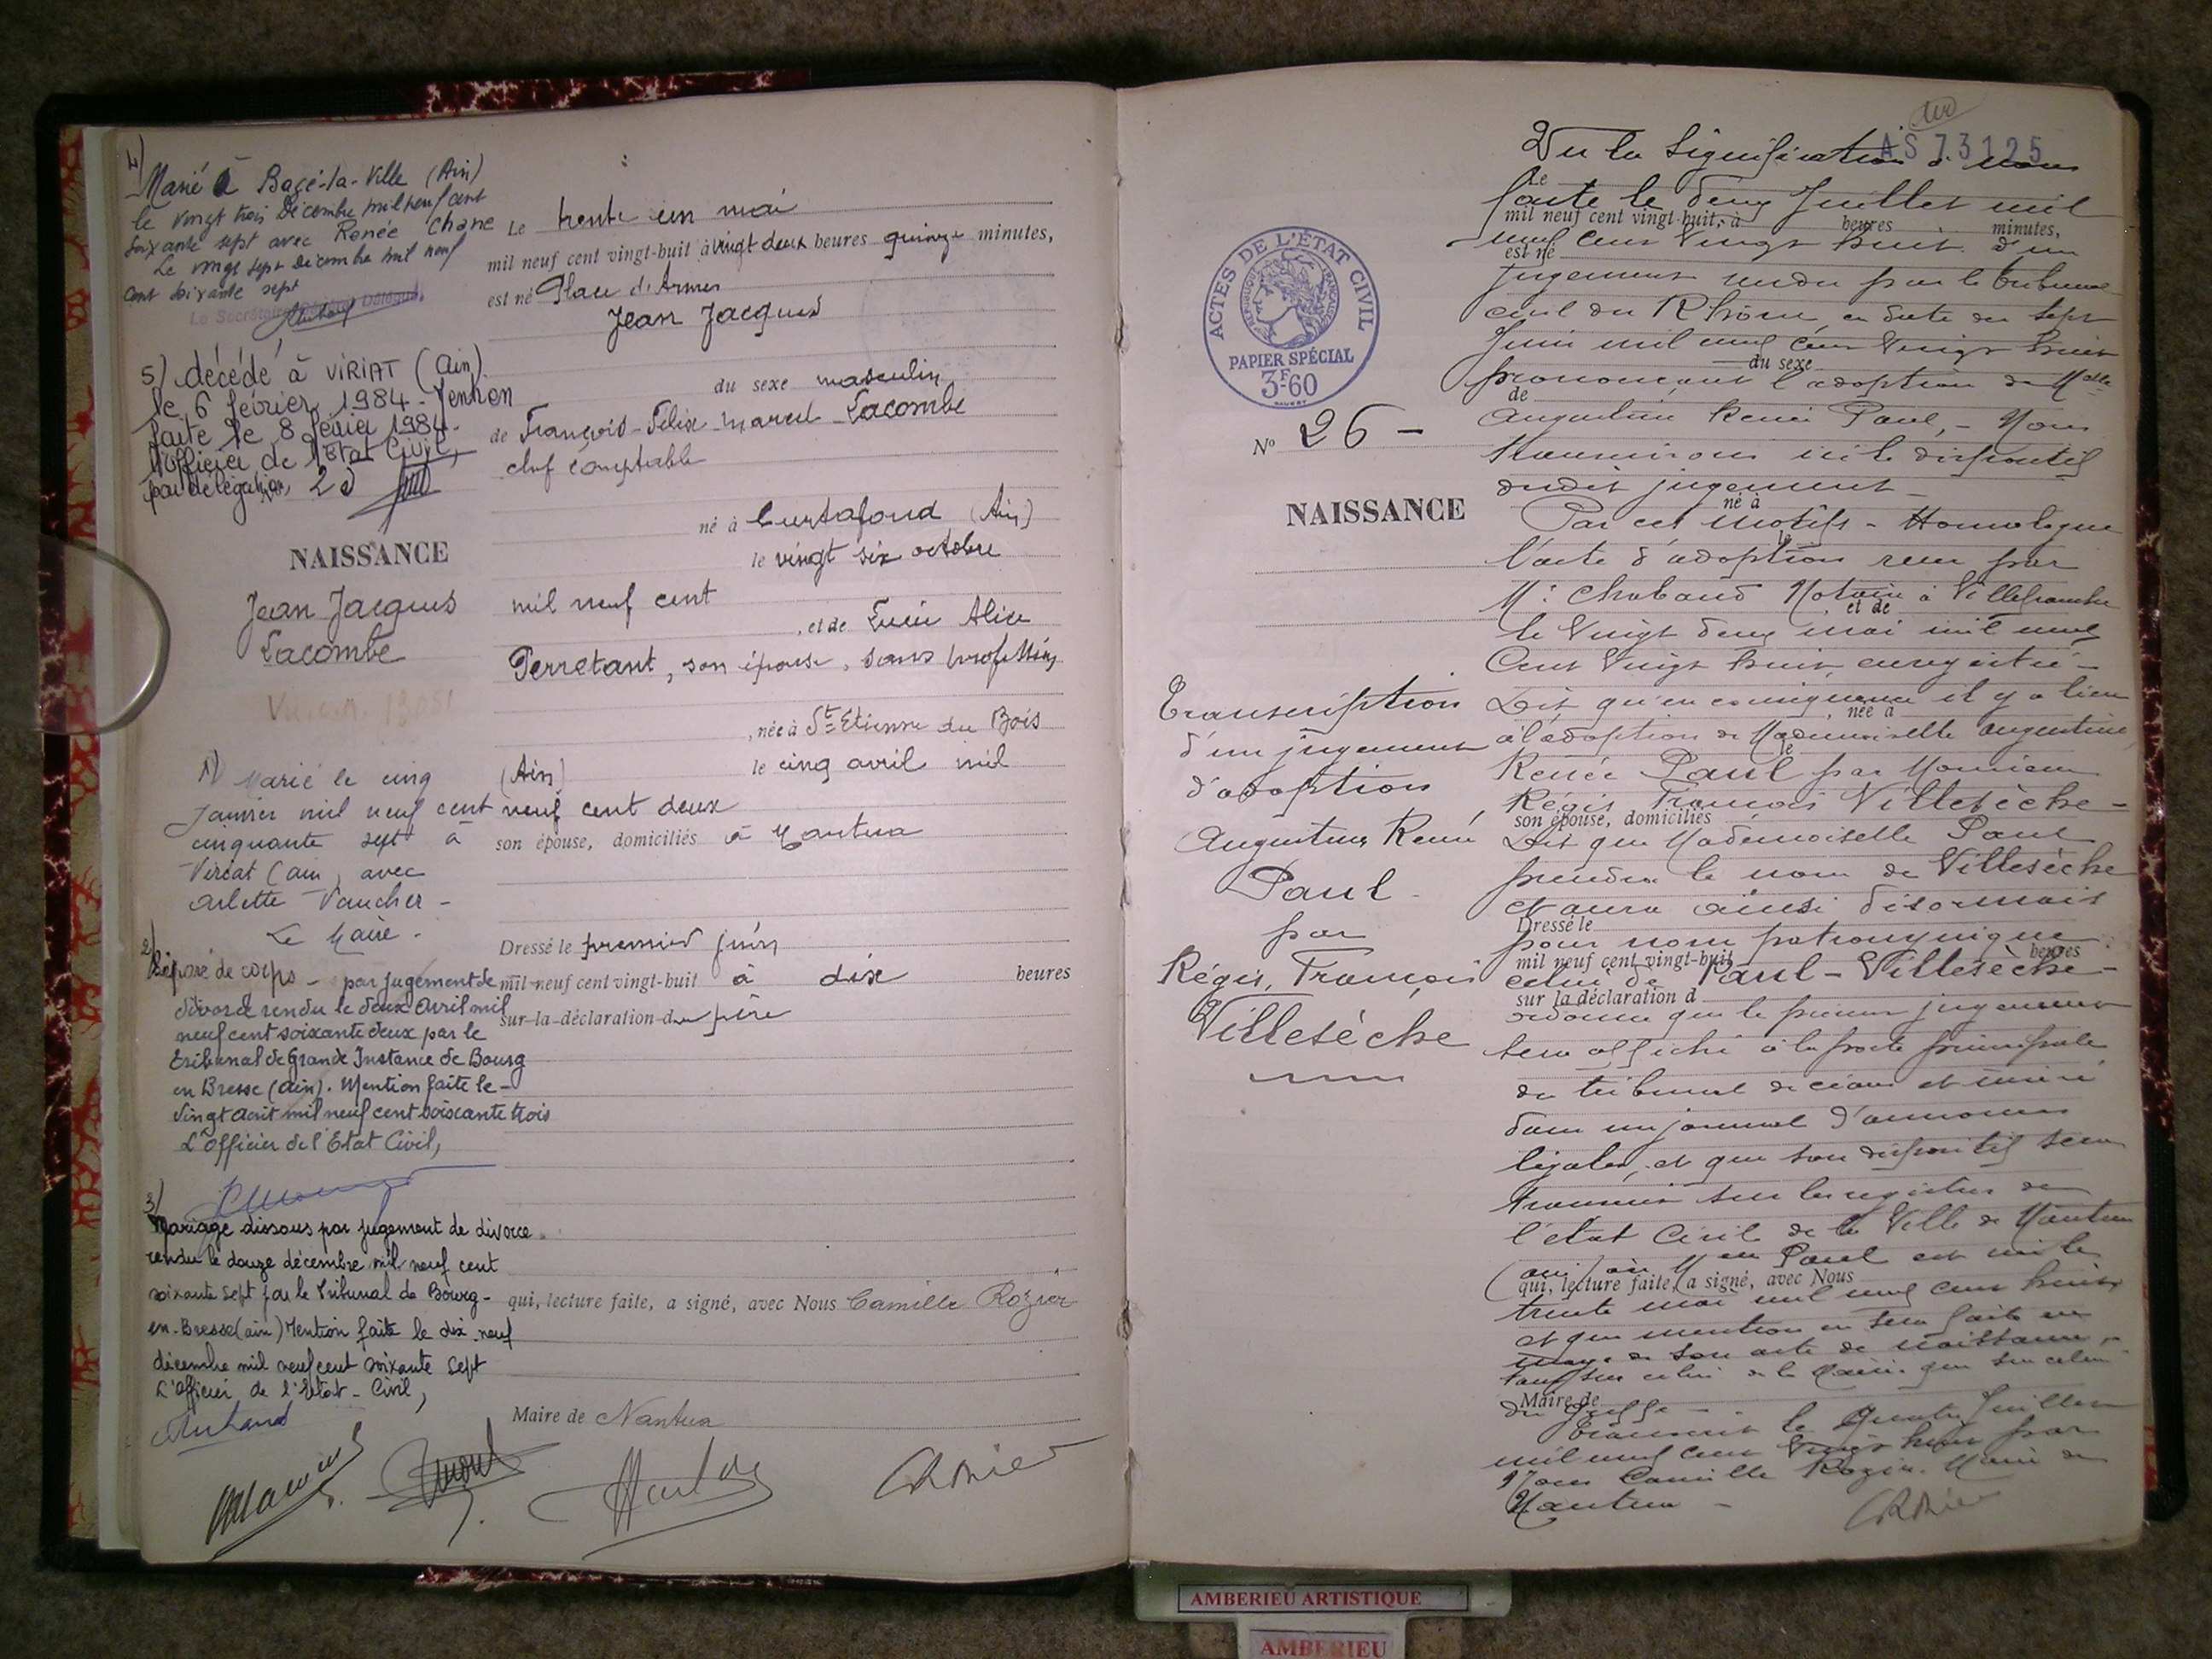 4)
Marié à Bagé-la-Ville (Ain)
le vingt trois Décembre mil neuf cent
soixante sept avec Renée Chane
Le vingt sept décembre mil neuf
cent soixante sept
Le Secrétaire Général Délégué,
5) décédé à VIRIAT (Ain)
le 6 février 1984. Mention
faite le 8 février 1984.
l'officier de l'Etat Civil,
par délégation,
NAISSANCE
Jean Jacques
Lacombe
1) Marié le cinq
Janvier mil neuf cent
cinquante sept à
Viriat (ain) avec
Arlette Vaucher -
Le Maire -
2) Séparé de corps - par jugement de
divorce rendu le deux Avril mil
neuf cent soixante deux par le
Tribunal de Grande Instance de Bourg
en Bresse (Ain). Mention faite le -
vingt août mil neuf cent soixante trois
L'Officier de l'Etat Civil,
3)
Mariage dissous par jugement de divorce
rendu le douze décembre mil neuf cent
soixante sept par le Tribunal de Bourg-
en-Bresse (ain) Mention faite le dix neuf
décembre mil neuf cent soixante sept
L'Officier de l'Etat-Civil,
Le trente un mai
mil neuf cent vingt-huit à vingt deux heures quinze minutes,
est né Place d'Armes
Jean Jacques
du sexe masculin
de François-Félix-Marcel-Lacombe
chef comptable
né à Curtafond (Ain)
le vingt six octobre
mil neuf cent
, et de Lucie Alice
Perretant, son épouse, sans profession
, née à St Etienne du Bois
(Ain) le cinq avril mil
neuf cent deux
son épouse, domiciliés à Nantua
Dressé le premier juin
mil neuf cent vingt-huit à dix heures
sur la déclaration du père
qui, lecture faite, a signé, avec Nous Camille Rozier
Maire de Nantua
AS 73125
ACTES DE L'ÉTAT CIVIL
RÉPUBLIQUE FRANÇAISE
PAPIER SPÉCIAL
3F60
No 26 -
NAISSANCE
Transcription
d'un jugement
d'adoption
Augustine Renée
Paul
par
Régis, François
Villesèche
Vu la Signification à nous
Le
faite le deux Juillet mil
mil neuf cent vingt-huit, à heures minutes,
neuf cent vingt huit d'un
est né
jugement rendu par le tribunal
civil du Rhône en date du sept
Juin mil neuf cent vingt huit
du sexe
prononçant l'adoption de Melle
de
Augustine Renée Paul, - Nous
transcrivons ici le dispositif
dudit jugement -
né à
Par ces motifs - Homologue
le
l'acte d'adoption reçu par
Me Chabaud Notaire à Villefranche
et de
le vingt deux mai mil neuf
cent vingt huit, enregistré -
Dit qu'en conséquence il y a lieu
, née à
à l'adoption de Mademoiselle Augustine,
le
Renée Paul par Monsieur
Régis François Villesèche -
son épouse, domiciliés
Dit que Mademoiselle Paul
prendra le nom de Villesèche
et aura ainsi désormais
Dressé le
pour nom patronymique
mil neuf cent vingt-huit heures
celui de Paul-Villesèche -
sur la déclaration d
ordonne que le présent jugement
sera affiché à la porte principale
du tribunal de céans et inséré
dans un journal d'annonces
légales, et que son dispositif sera
transcrit sur les registres de
l'état Civil de la Ville de Nantua
(ain) où Melle Paul est née le
qui, lecture faite, a signé, avec Nous
trente mai mil neuf cent huit
et que mention en sera faite en
marge de son acte de naissance,
tant sur celui de la Mairie que sur celui
Maire de
du Greffe -
Transcrit le quatre Juillet
mil neuf cent vingt huit par
Nous Camille Rozier. Maire de
Nantua -
AMBERIEU ARTISTIQUE
AMBERIEU